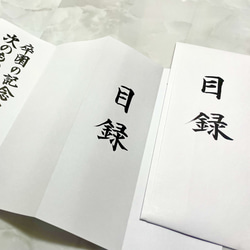 目録
目録
卒園の記念
次のも